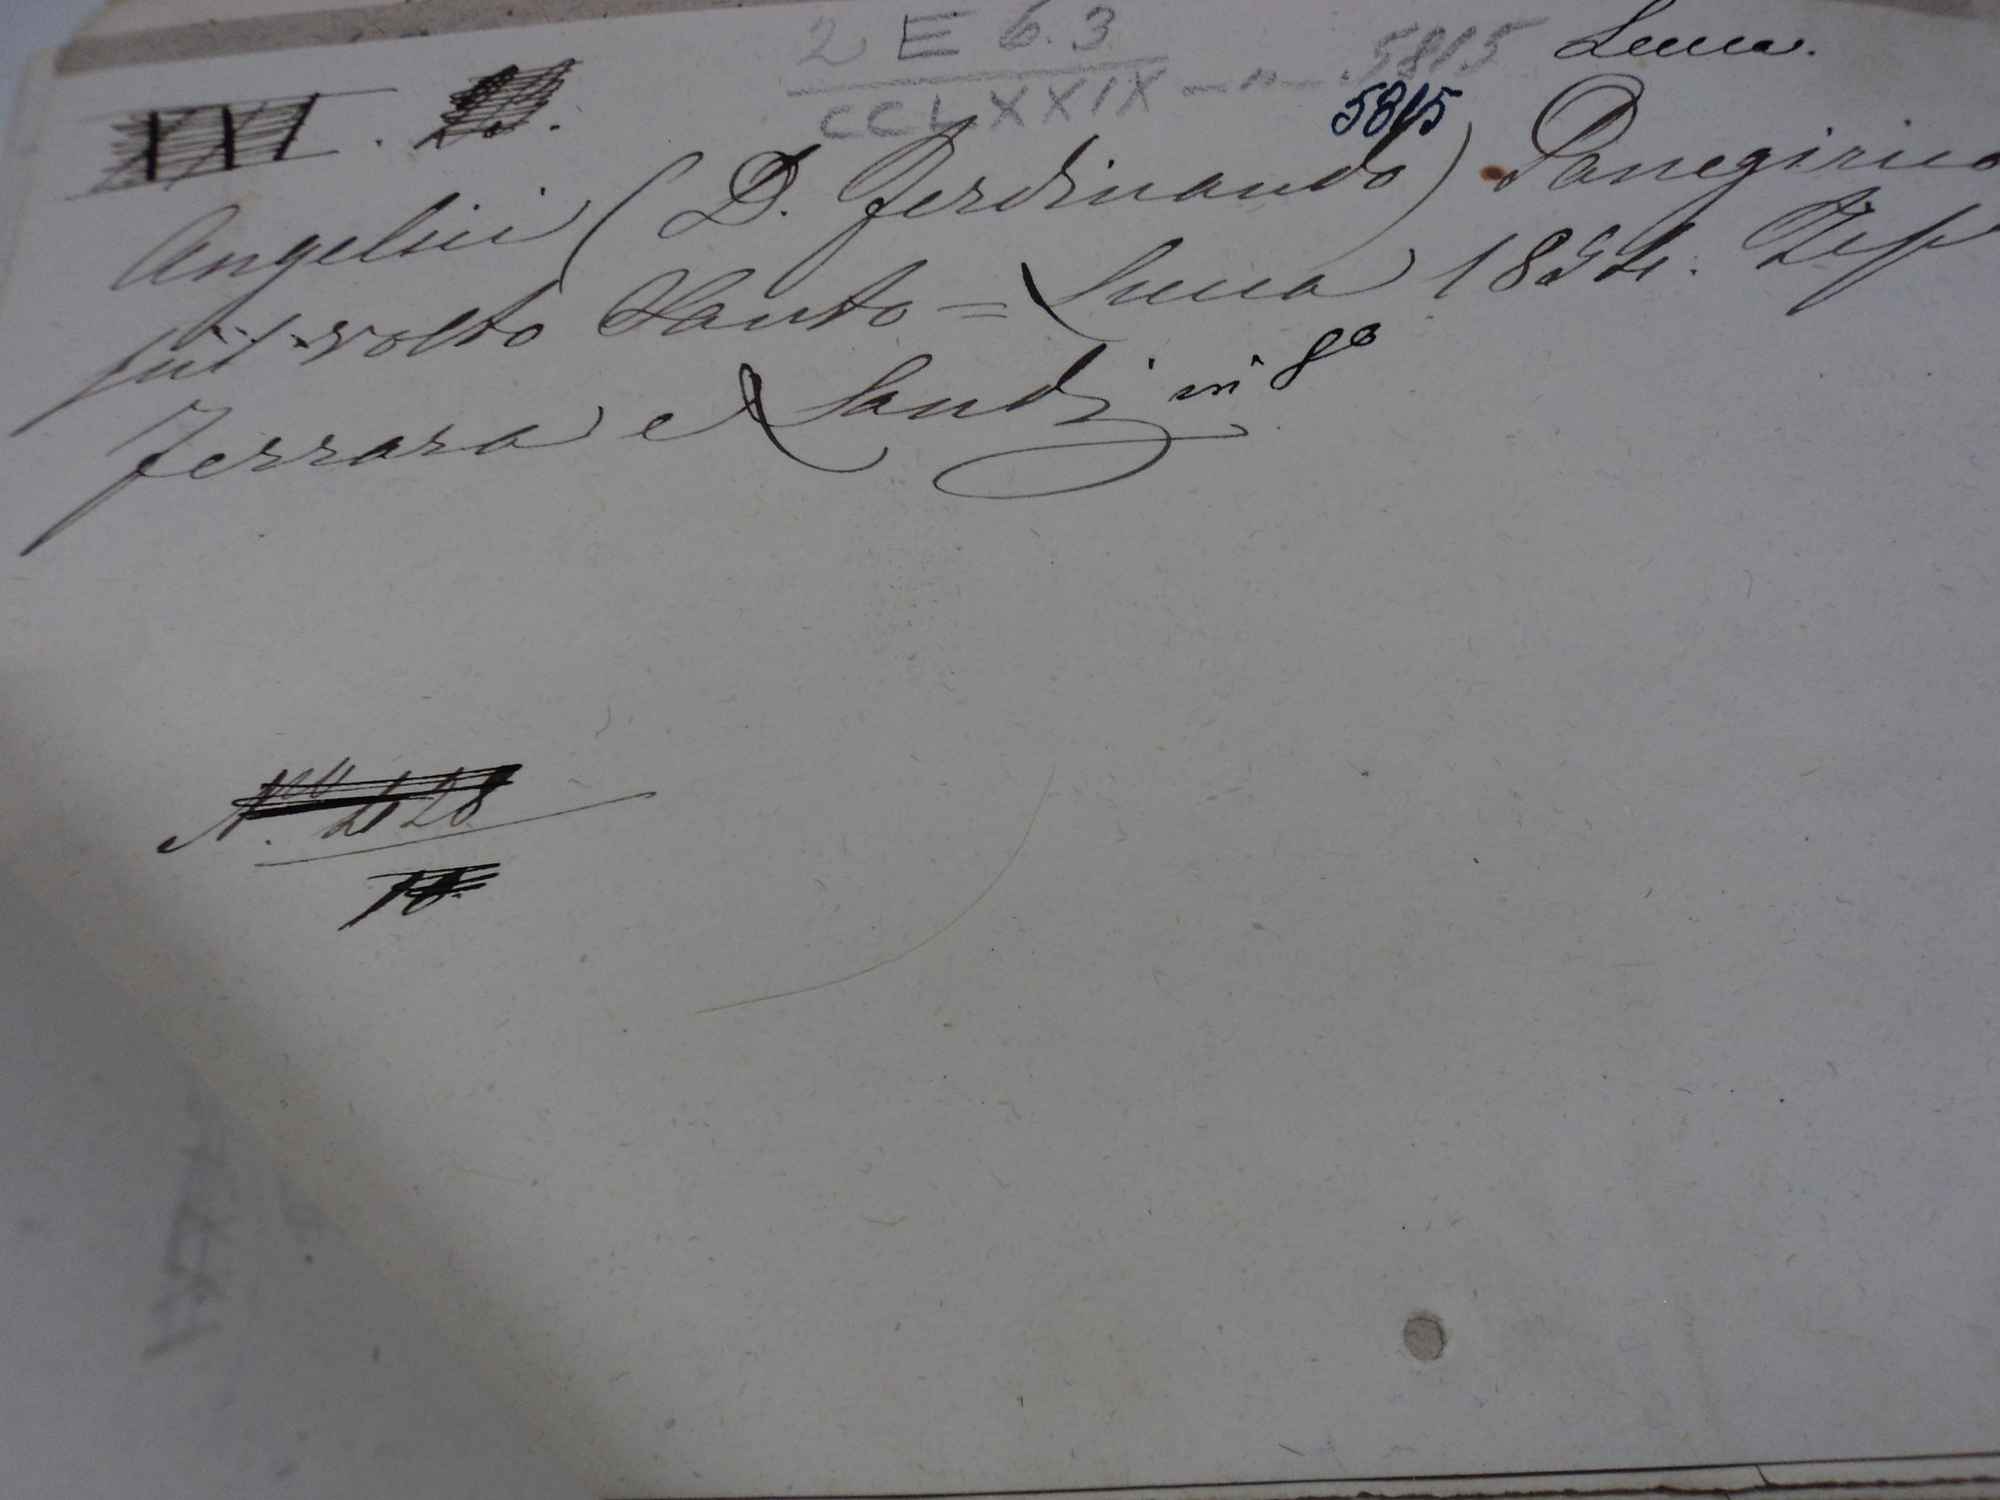 2 E 6.3
CCLXXIX —"— 5815 Lucca.
XVI.
5815
Angelini (D. Ferdinando) Panegirico
sul volto Santo = Lucca 1834. Tip
Ferrara e Landi in 8º
N. 428
10.